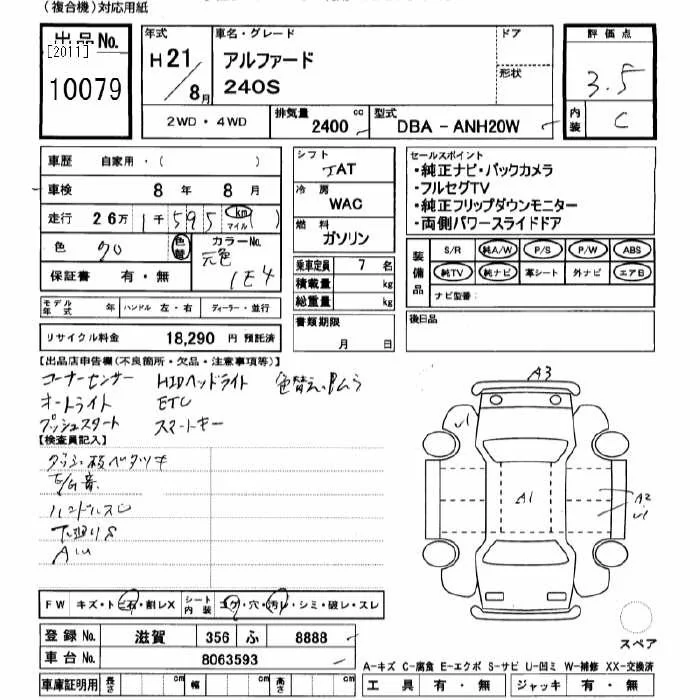 （複合機）対応用紙
出品No.
[2011]
10079
年式
H21／8月
車名・グレード
アルファード
240S
ドア
形状
2WD・4WD
排気量
2400 cc
型式
DBA - ANH20W
評価点
3.5
内装
C
車歴 自家用・（ ）
車検 8 年 8 月
走行 26万 1千 595 km マイル （ ）
色 クロ 色替 カラーNo.
元色 1E4
保証書 有・無
モデル年式 年 ハンドル 左・右 ディーラー・並行
リサイクル料金 18,290 円 預託済
シフト
IAT
冷房
WAC
燃料
ガソリン
乗車定員 7 名
積載量 kg
総重量 kg
書類期限
月 日
セールスポイント
・純正ナビ・バックカメラ
・フルセグTV
・純正フリップダウンモニター
・両側パワースライドドア
装備品
S/R 純A/W P/S P/W ABS
純TV 純ナビ 革シート 外ナビ エアB
ナビ型番：
後日品
【出品店申告欄（不良箇所・欠品・注意事項等）】
コーナーセンサー HIDヘッドライト 色替え、ムラ
オートライト ETC
プッシュスタート スマートキー
【検査員記入】
E/G音
ハンドルスレ
下廻りS
AW
A3
U1
A1
A2
U1
FW キズ・トビ石・割レX
シート内装 コゲ・穴・汚レ・シミ・破レ・スレ
登録No. 滋賀 356 ふ 8888
車台No. 8063593
車庫証明用 長さ cm 幅 cm 高さ cm
スペア
A-キズ C-腐食 E-エクボ S-サビ U-凹ミ W-補修 XX-交換済
工具 有・無 ジャッキ 有・無